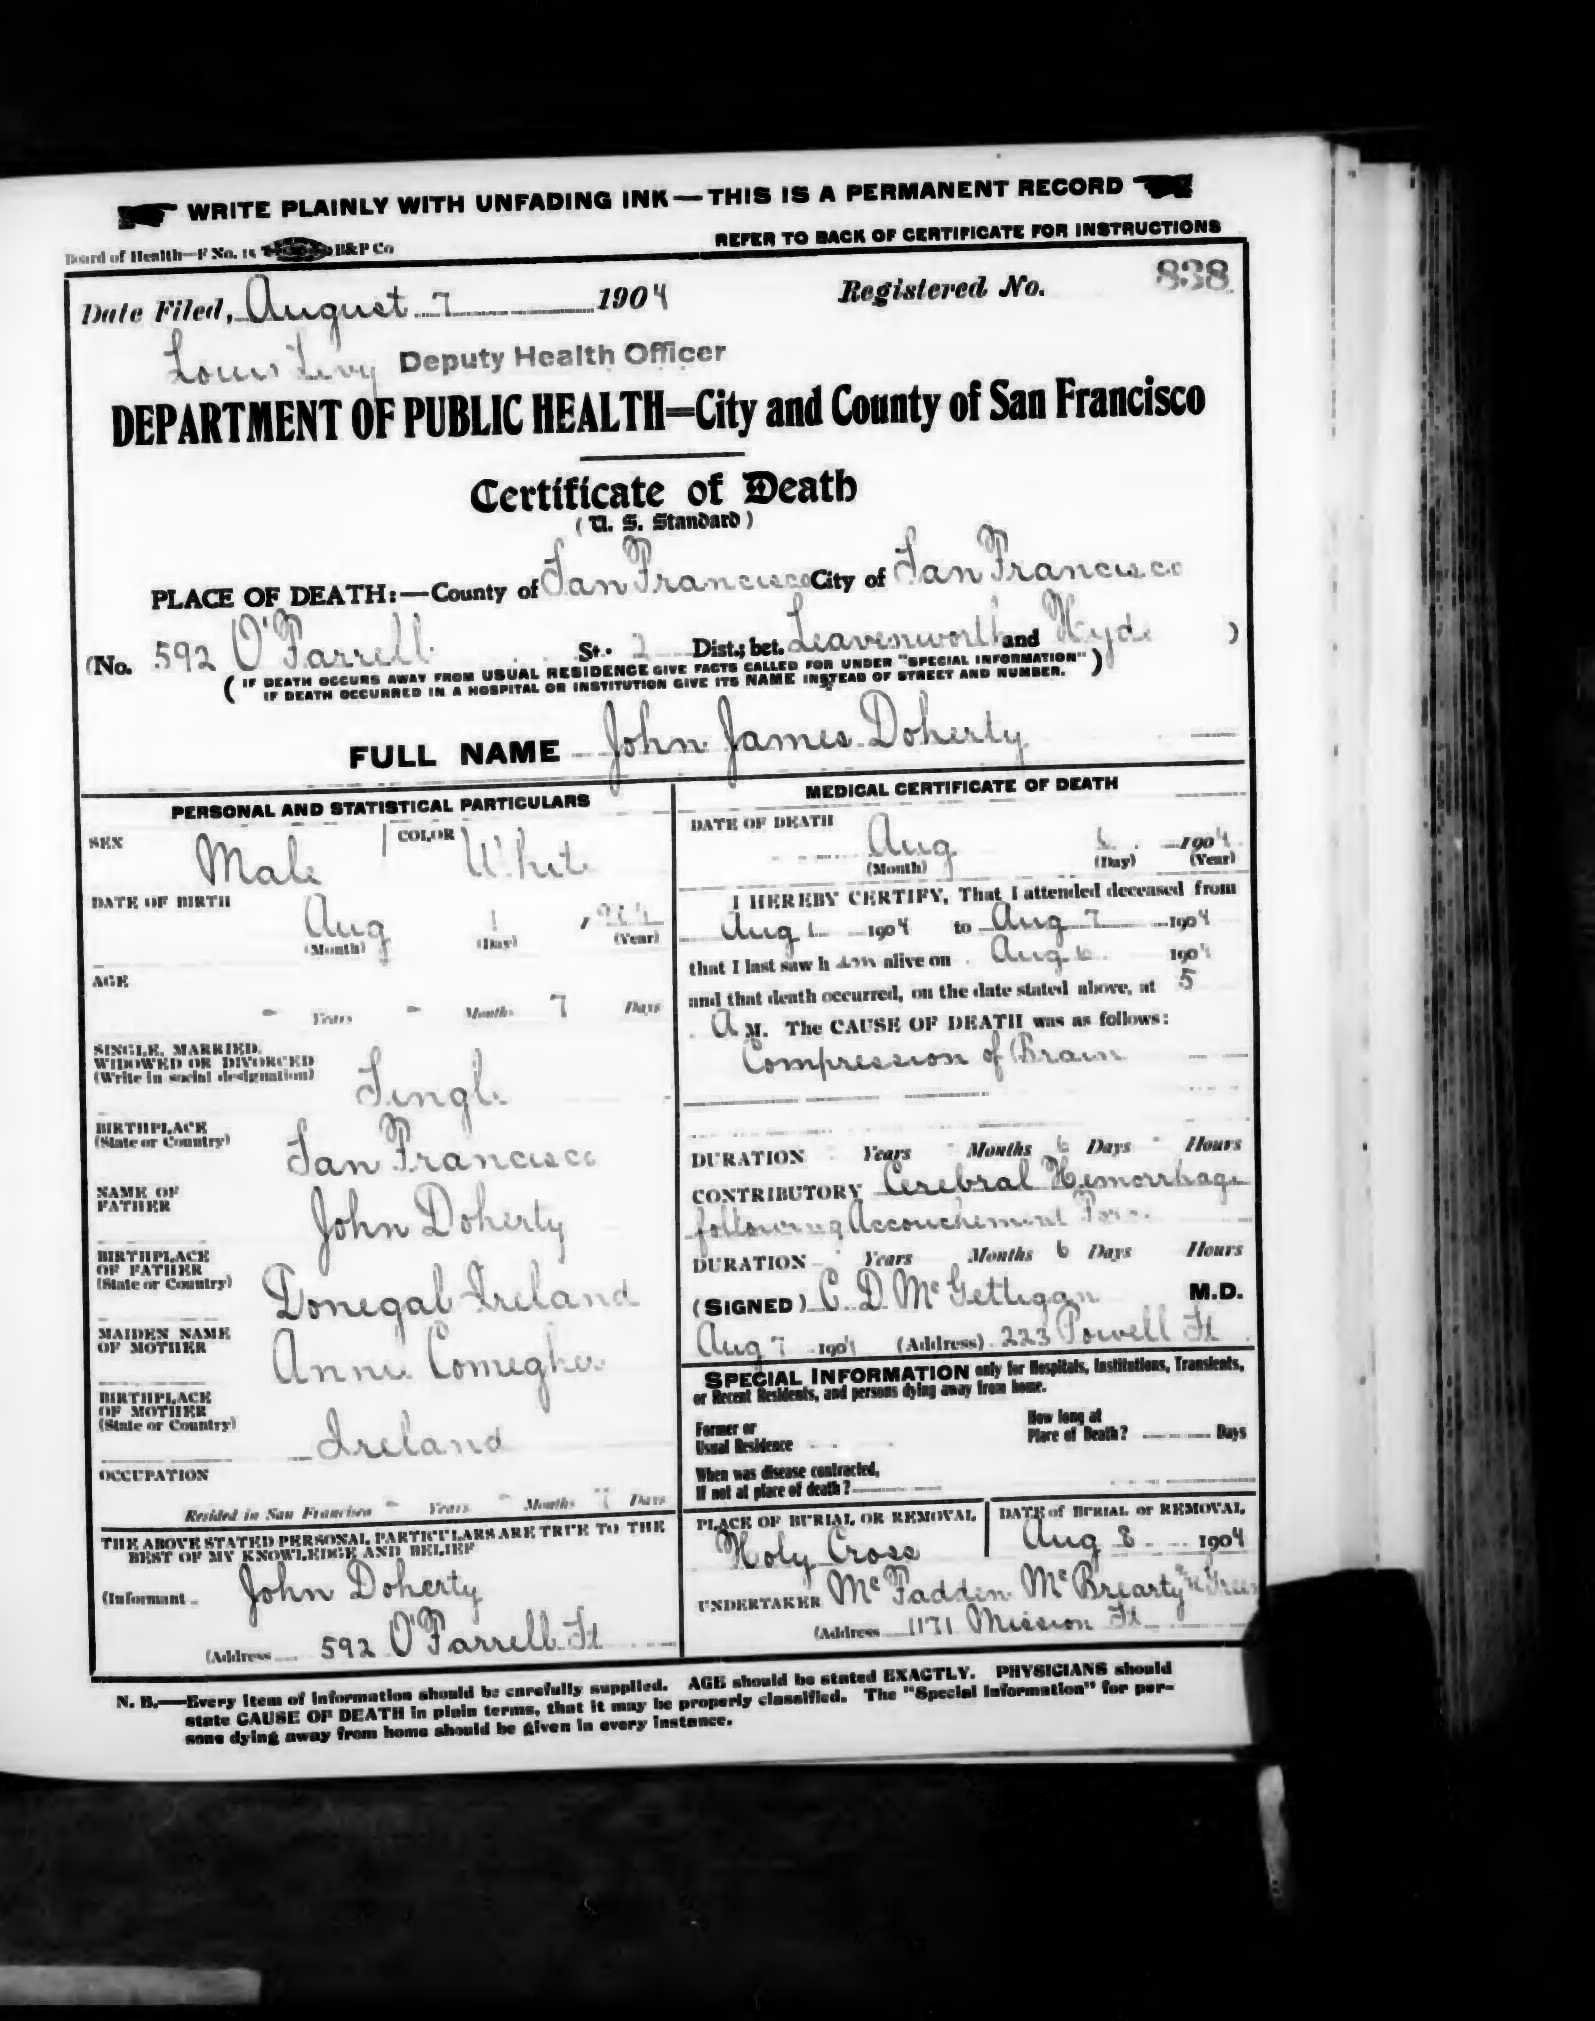 WRITE PLAINLY WITH UNFADING INK—THIS IS A PERMANENT RECORD
Board of Health—F No. 15 B&P Co
REFER TO BACK OF CERTIFICATE FOR INSTRUCTIONS
Date Filed, August 7 1904 Registered No. 838
Louis Levy Deputy Health Officer
DEPARTMENT OF PUBLIC HEALTH=City and County of San Francisco
Certificate of Death
(U. S. Standard)
PLACE OF DEATH:—County of San Francisco City of San Francisco
(No. 592 O'Farrell St. 2 Dist.; bet. Leavenworth and Hyde )
( IF DEATH OCCURS AWAY FROM USUAL RESIDENCE GIVE FACTS CALLED FOR UNDER "SPECIAL INFORMATION"
IF DEATH OCCURRED IN A HOSPITAL OR INSTITUTION GIVE ITS NAME INSTEAD OF STREET AND NUMBER. )
FULL NAME John James Doherty
PERSONAL AND STATISTICAL PARTICULARS
SEX Male COLOR White
DATE OF BIRTH Aug 1, 1904
(Month) (Day) (Year)
AGE
- Years - Months 7 Days
SINGLE, MARRIED,
WIDOWED OR DIVORCED
(Write in social designation) Single
BIRTHPLACE
(State or Country) San Francisco
NAME OF
FATHER John Doherty
BIRTHPLACE
OF FATHER
(State or Country) Donegal Ireland
MAIDEN NAME
OF MOTHER Annie
BIRTHPLACE
OF MOTHER
(State or Country) Ireland
OCCUPATION
Resided in San Francisco - Years - Months 7 Days
THE ABOVE STATED PERSONAL PARTICULARS ARE TRUE TO THE
BEST OF MY KNOWLEDGE AND BELIEF
(Informant John Doherty
(Address 592 O'Farrell St
MEDICAL CERTIFICATE OF DEATH
DATE OF DEATH
Aug 6 1904
(Month) (Day) (Year)
I HEREBY CERTIFY, That I attended deceased from
Aug 1 1904 to Aug 7 1904
that I last saw him alive on Aug 6 1904
and that death occurred, on the date stated above, at 5
A M. The CAUSE OF DEATH was as follows:
Compression of Brain
DURATION - Years - Months 6 Days - Hours
CONTRIBUTORY Cerebral Hemorrhage
following Accouchement
DURATION - Years Months 6 Days Hours
(SIGNED) C. D. McGettigan M.D.
Aug 7 1904 (Address) 223 Powell St
SPECIAL INFORMATION only for Hospitals, Institutions, Transients,
or Recent Residents, and persons dying away from home.
Former or
Usual Residence
How long at
Place of Death? Days
When was disease contracted,
If not at place of death?
PLACE OF BURIAL OR REMOVAL
Holy Cross
DATE of BURIAL or REMOVAL
Aug 8 1904
UNDERTAKER McFadden McBrearty &
(Address 1171 Mission St
N. B.—Every item of information should be carefully supplied. AGE should be stated EXACTLY. PHYSICIANS should
state CAUSE OF DEATH in plain terms, that it may be properly classified. The "Special Information" for per-
sons dying away from home should be given in every instance.